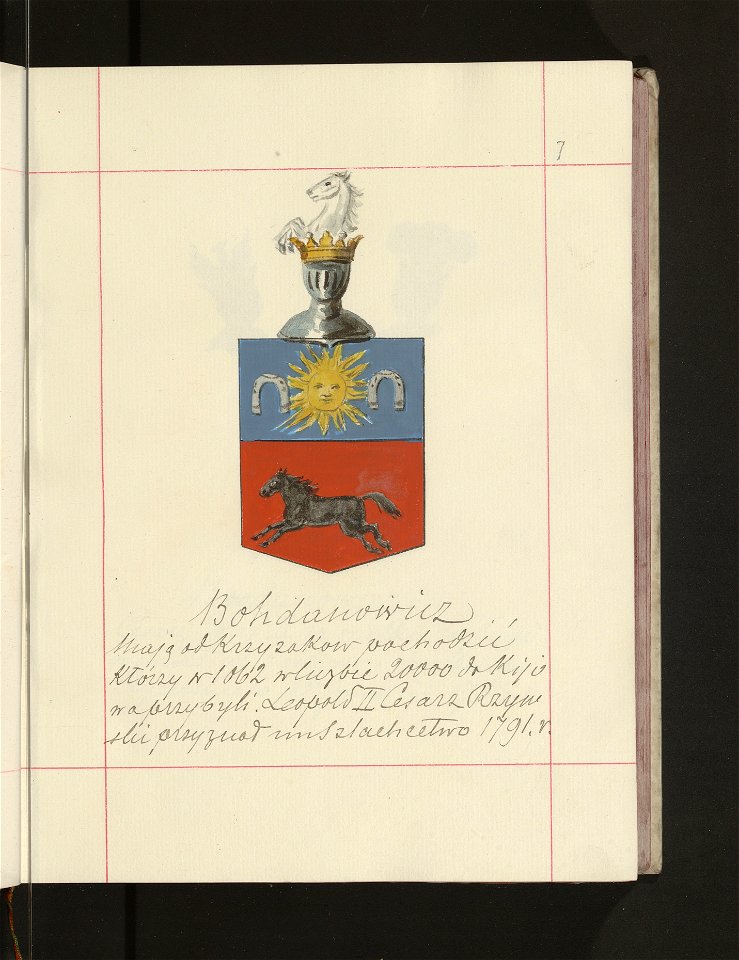 7
Bohdanowicz
mają od Krzyzakow pochodzić
którzy w 1062 w liczbie 20000 do Kijo
wa przybyli. Leopold II Cesarz Rzym
ski przyznał im Szlachectwo 1791. r.